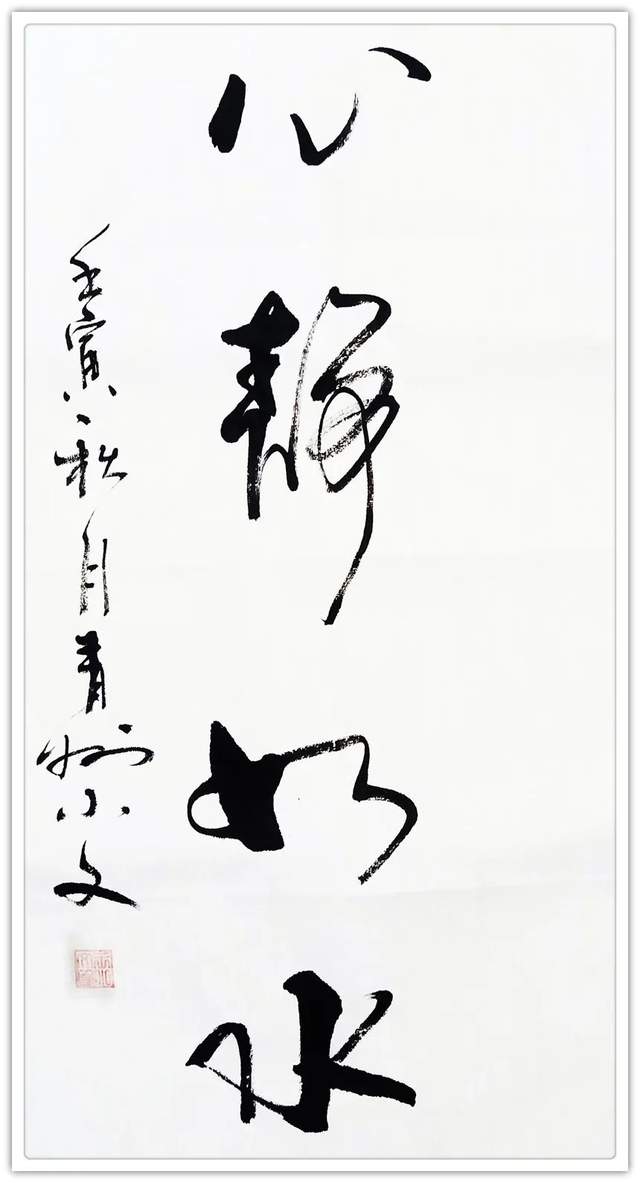 心静如水
壬寅秋月青州小文